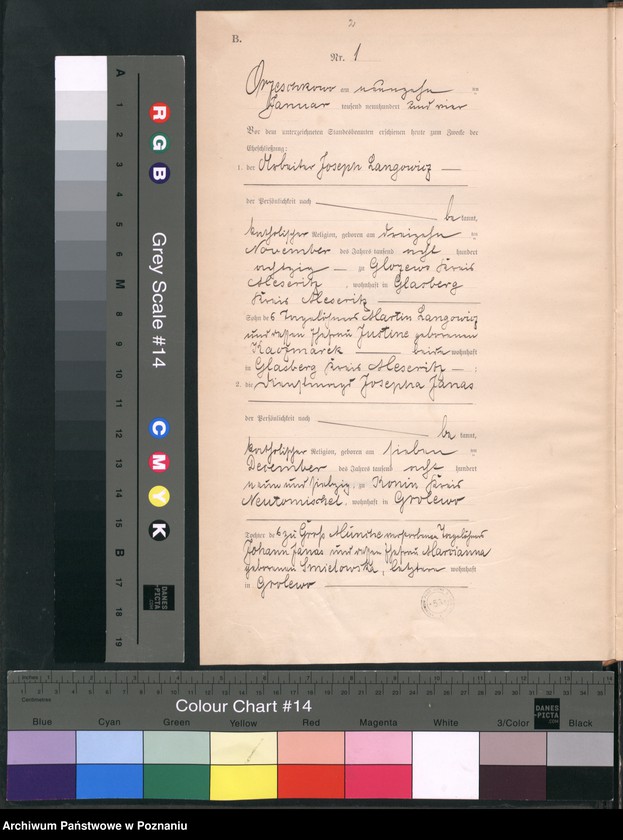 2
B.
Nr. 1
Orzeschkowo am neunzehn ten
Januar tausend neunhundert und vier
Vor dem unterzeichneten Standesbeamten erschienen heute zum Zwecke der
Eheschließung:
1. der Arbeiter Joseph Langowicz
der Persönlichkeit nach
be kannt,
katholischer Religion, geboren am dreizehn ten
November des Jahres tausend acht hundert
achtzig zu Glozewo Kreis
Meseritz, wohnhaft in Glasberg
Kreis Meseritz
Sohn des Tagelöhners Martin Langowicz
und dessen Ehefrau Justine geborenen
Kaczmarek beide wohnhaft
in Glasberg Kreis Meseritz ;
2. die Dienstmagd Josepha Janas
der Persönlichkeit nach
be kannt,
katholischer Religion, geboren am sieben ten
Dezember des Jahres tausend acht hundert
neun und siebzig zu Konin Kreis
Neutomischel, wohnhaft in Grolewo
Tochter des zu Groß Münche verstorbenen Tagelöhners
Johann Janas und dessen Ehefrau Marianna
geborenen Smielowska, letztere wohnhaft
in Grolewo
A
1
2
3
4
5
6
M
8
9
10
11
12
13
14
15
B
17
18
19
R
G
B
Grey Scale #14
C
M
Y
K
DANES
-PICTA
.COM
Inches
Centimetres
Colour Chart #14
DANES
-PICTA
.COM
Blue Cyan Green Yellow Red Magenta White 3/Color Black
Archiwum Państwowe w Poznaniu